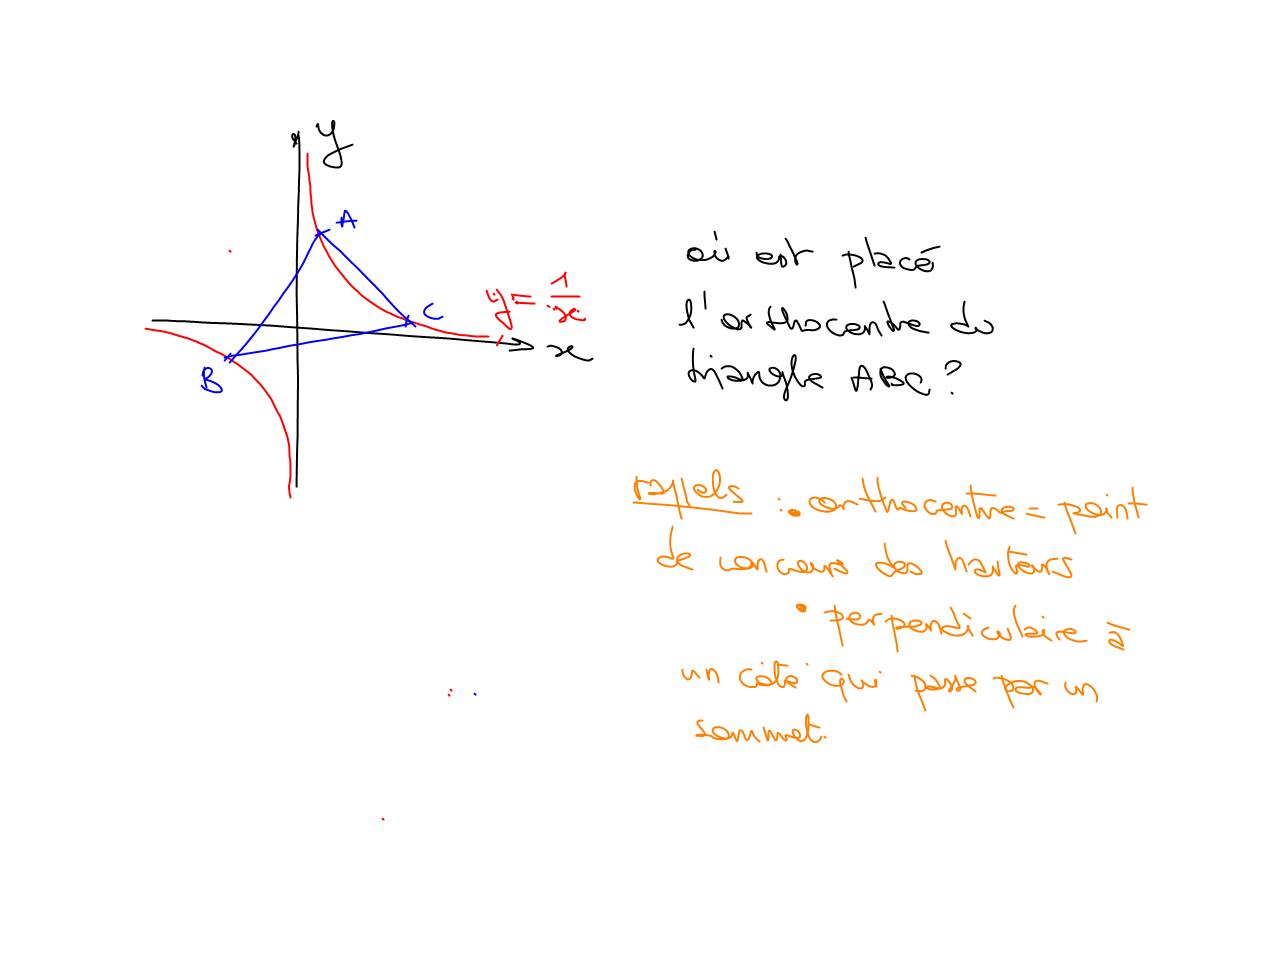 y
A
C
y = 1/x
x
B
où est placé
l'orthocentre du
triangle ABC ?
rappels : • orthocentre = point
de concours des hauteurs
• perpendiculaire à
un côté qui passe par un
sommet.